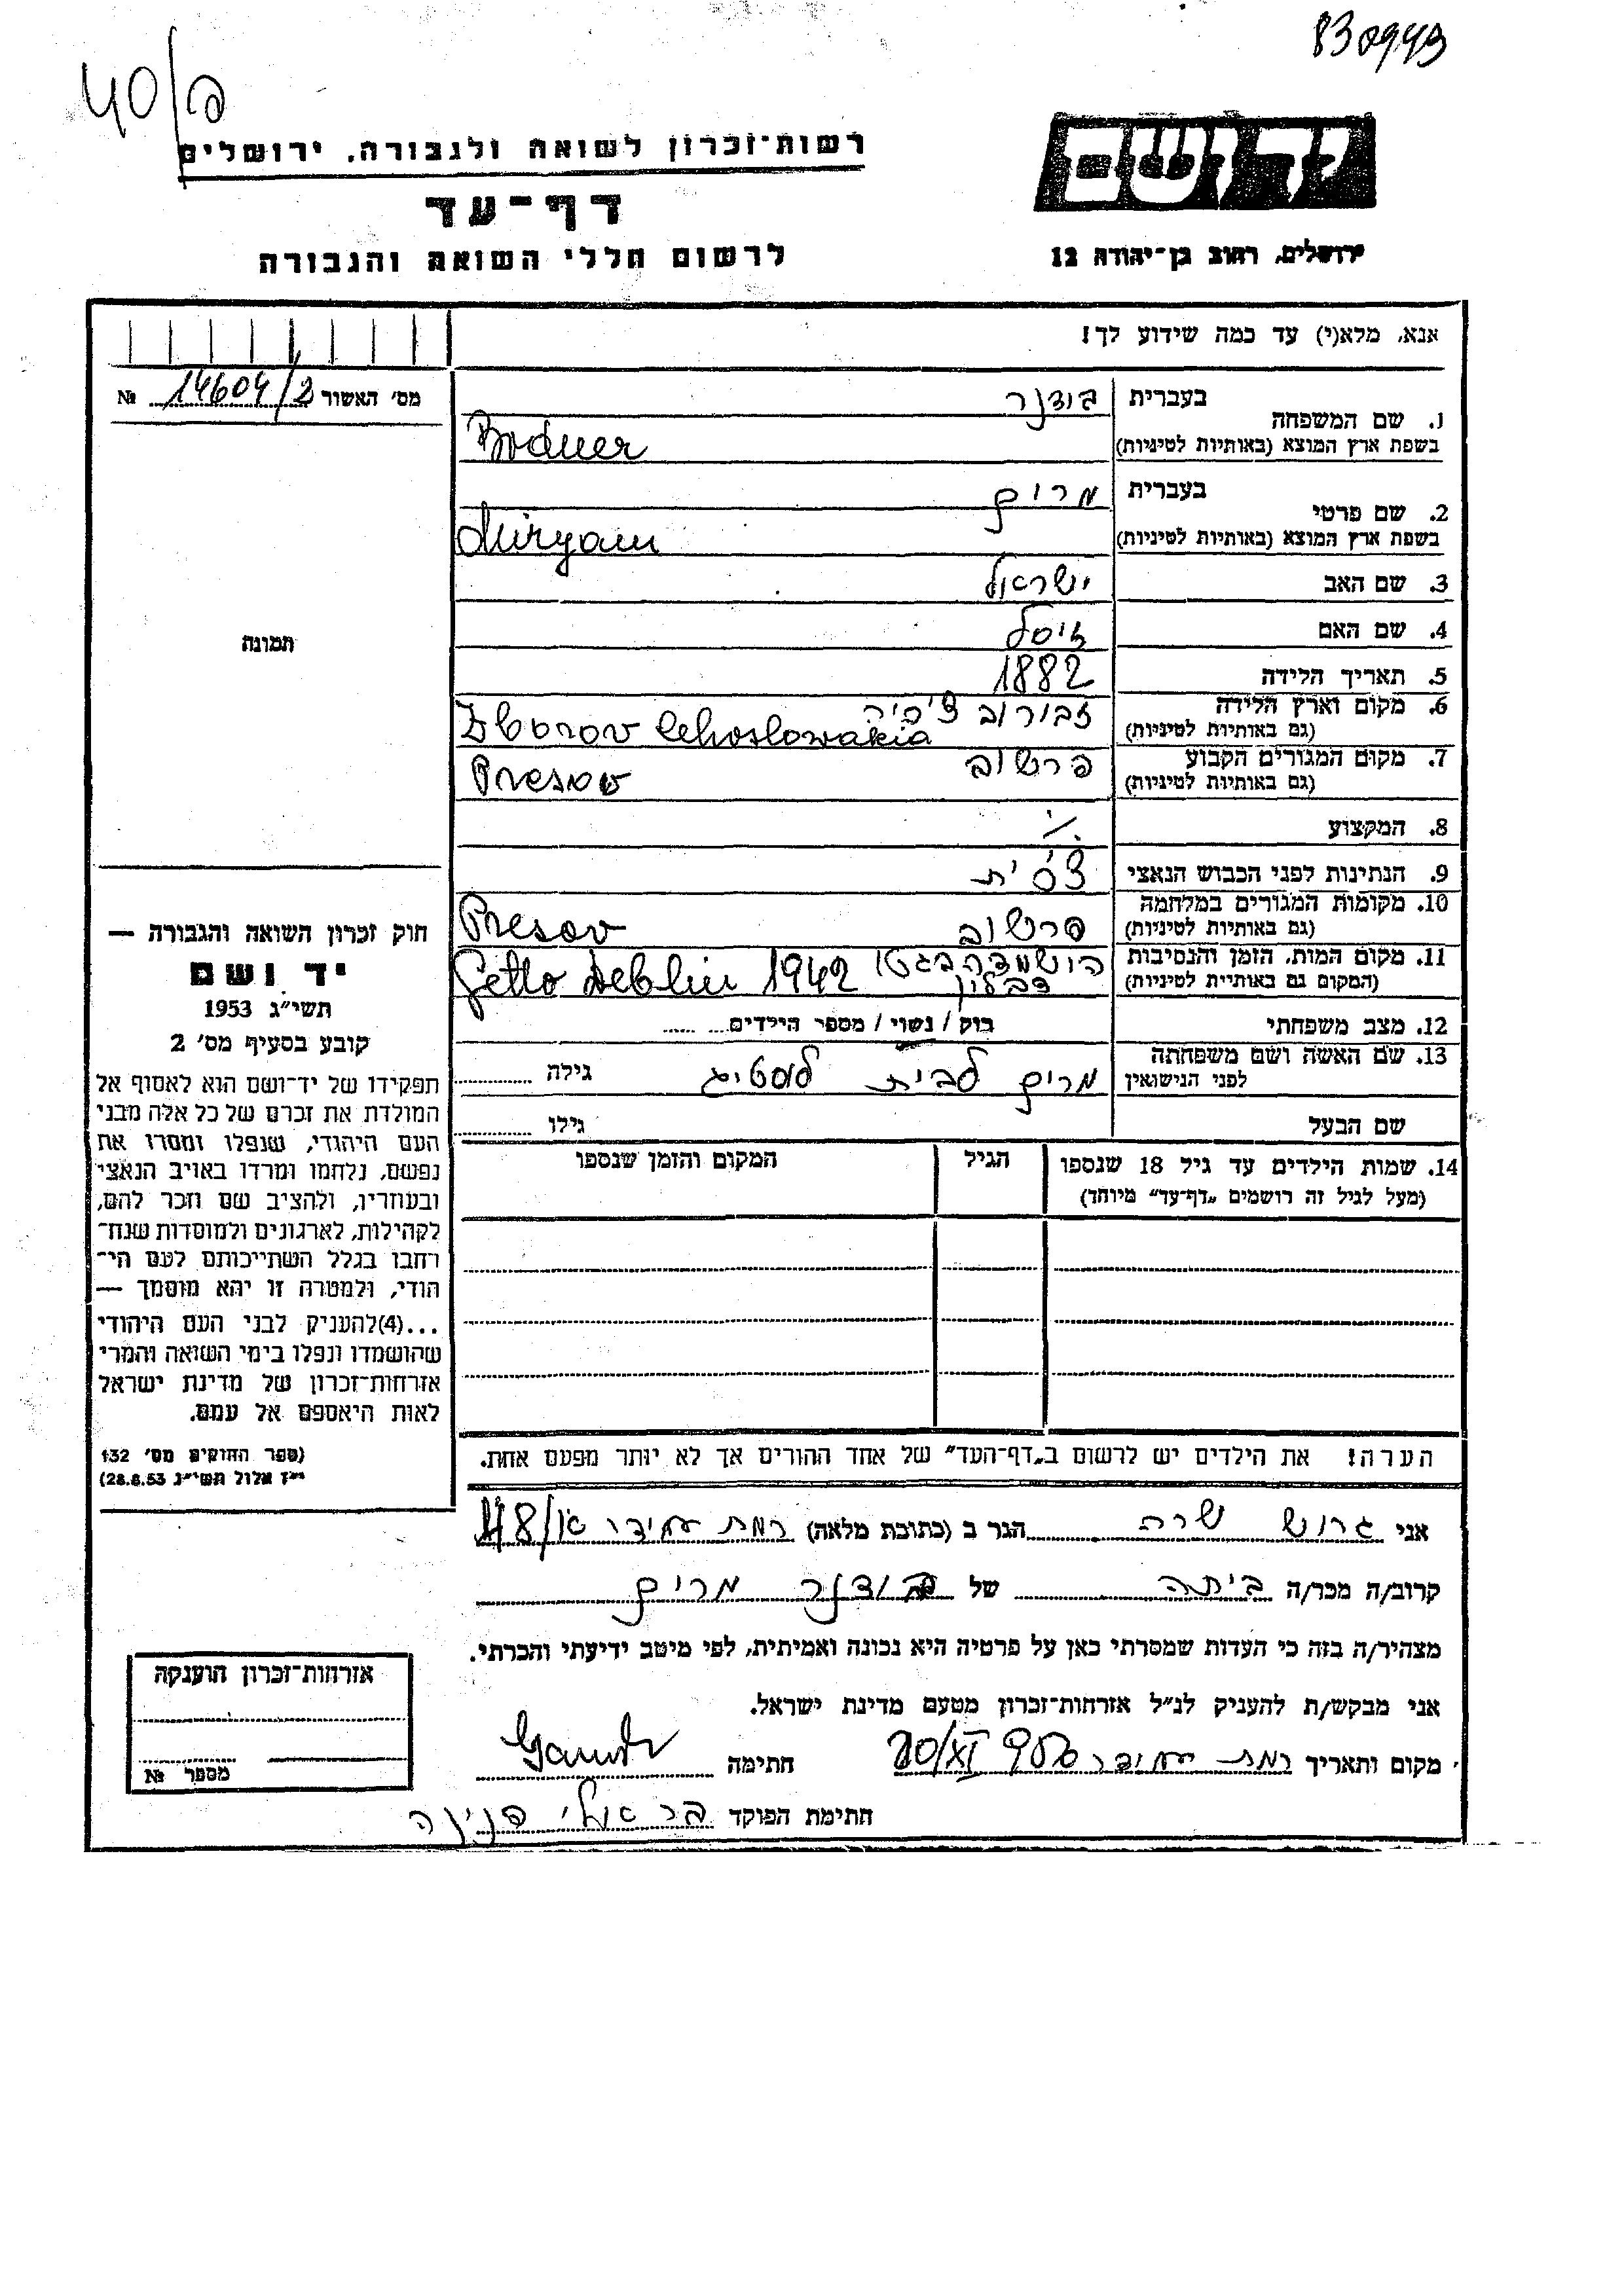 830949
40/פ
יד ושם
רשות־זכרון לשואה ולגבורה, ירושלים
דף־עד
לרשום חללי השואה והגבורה
ירושלים, רחוב בן־יהודה 12
אנא, מלא(י) עד כמה שידוע לך!
מס' האשור 14604/2 №
תמונה
1. שם המשפחה בעברית בודנר
בשפת ארץ המוצא (באותיות לטיניות) Bodner
2. שם פרטי בעברית מרים
בשפת ארץ המוצא (באותיות לטיניות) Miryam
3. שם האב ישראל
4. שם האם זיסל
5. תאריך הלידה 1882
6. מקום וארץ הלידה זבורוב צ'כיה
(גם באותיות לטיניות) Zborov Cehoslowakia
7. מקום המגורים הקבוע פרשוב
(גם באותיות לטיניות) Presov
8. המקצוע ./.
9. הנתינות לפני הכבוש הנאצי צ'כית
10. מקומות המגורים במלחמה פרשוב
(גם באותיות לטיניות) Presov
11. מקום המות, הזמן והנסיבות הושמדה בגטו דבלין
(המקום גם באותיית לטיניות) Getto Deblin 1942
12. מצב משפחתי רווק / נשוי / מספר הילדים
13. שם האשה ושם משפחתה
לפני הנישואין מרים לבית לוסטיג גילה
שם הבעל גילו
14. שמות הילדים עד גיל 18 שנספו הגיל המקום והזמן שנספו
(מעל לגיל זה רושמים „דף־עד” מיוחד)
הערה! את הילדים יש לרשום ב„דף־העד” של אחד ההורים אך לא יותר מפעם אחת.
חוק זכרון השואה והגבורה —
יד ושם
תשי״ג 1953
קובע בסעיף מס' 2
תפקידו של יד־ושם הוא לאסוף אל
המולדת את זכרם של כל אלה מבני
העם היהודי, שנפלו ומסרו את
נפשם, נלחמו ומרדו באויב הנאצי
ובעוזריו, ולהציב שם וזכר להם,
לקהילות, לארגונים ולמוסדות שנח־
רחבו בגלל השתייכותם לעם הי־
הודי, ולמטרה זו יהא מוסמך —
...(4)להעניק לבני העם היהודי
שהושמדו ונפלו בימי השואה והמרי
אזרחות־זכרון של מדינת ישראל
לאות היאספם אל עמם.
(ספר החוקים מס' 132
י״ז אלול תשי״ג 28.8.53)
אני גרוש שרה הגר ב (כתובת מלאה) רמת עמידר
קרוב/ה מכר/ה ביתה של בודנר מרים
מצהיר/ה בזה כי העדות שמסרתי כאן על פרטיה היא נכונה ואמיתית, לפי מיטב ידיעתי והכרתי.
אני מבקש/ת להעניק לנ״ל אזרחות־זכרון מטעם מדינת ישראל.
מקום ותאריך רמת עמידר 20/XI חתימה
חתימת הפוקד בר אולי פנינה
אזרחות־זכרון הוענקה
מספר №